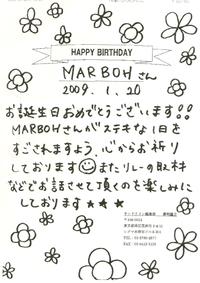 HAPPY BIRTHDAY
MARBOHさん
2009.1.20
お誕生日おめでとうございます!!
MARBOHさんがステキな1日を
すごされますよう、心からお祈り
しております☺またリレーの取材
などでお話させて頂くのを楽しみに
しております★★★